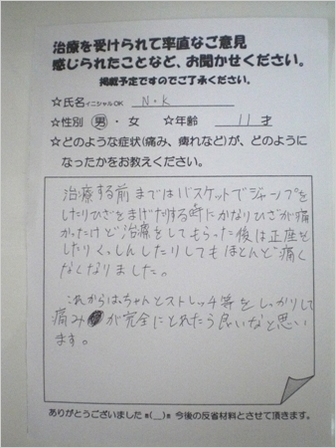 治療を受けられて率直なご意見
感じられたことなど、お聞かせください。
掲載予定ですのでご了承ください。
☆氏名イニシャルOK N・K
☆性別 男・女 ☆年齢 11才
☆どのような症状(痛み、痺れなど)が、どのように
なったかをお教えください。
治療する前まではバスケットでジャンプを
したりひざをまげたりする時にかなりひざが痛
かったけど治療をしてもらった後は正座を
したりくっしんしたりしてもほとんど痛く
なくなりました。
これからはちゃんとストレッチ等をしっかりして
痛みが完全にとれたら良いなと思い
ます。
ありがとうございました m(__)m 今後の反省材料とさせて頂きます。